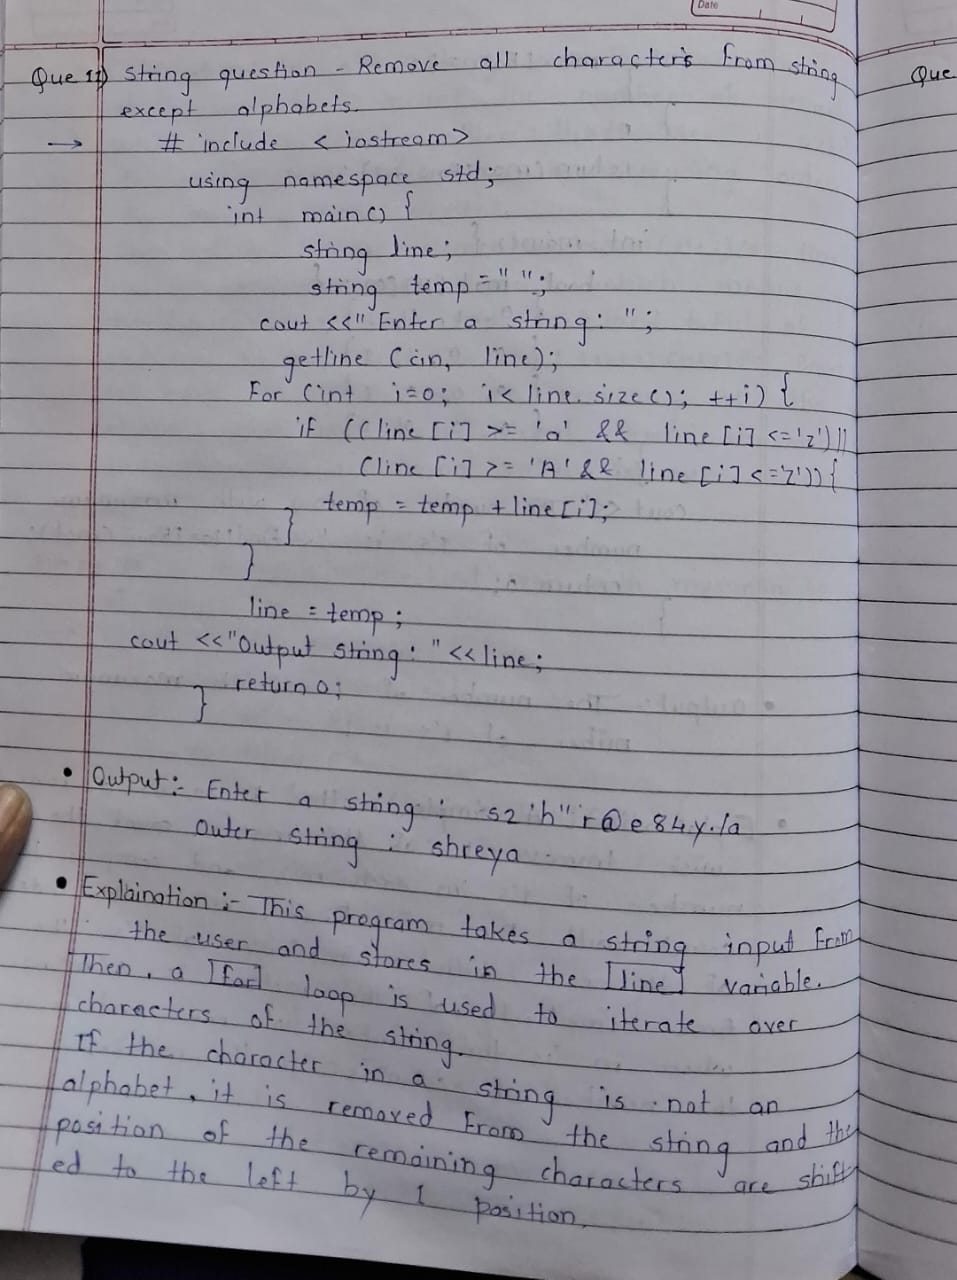 Date
Que 11) String question - Remove all characters from string
except alphabets.
→ # include < iostream>
using namespace std;
int main() {
string line;
string temp = " ";
cout <<" Enter a string: ";
getline (cin, line);
For (int i=0; i< line.size(); ++i) {
if ((line [i] >= 'a' && line [i] <='z') ||
(line [i] >= 'A' && line [i] <='Z')) {
temp = temp + line [i];
}
}
line = temp ;
cout <<"Output string: " << line;
return 0;
}
• Output :- Enter a string : s2'h"r@e84y./a
Outer string : shreya
• Explaination :- This program takes a string input from
the user and stores in the [line] variable.
Then, a [for] loop is used to iterate over
characters of the string.
If the character in a string is not an
alphabet, it is removed from the string and the
position of the remaining characters are shift
ed to the left by 1 position.
Que